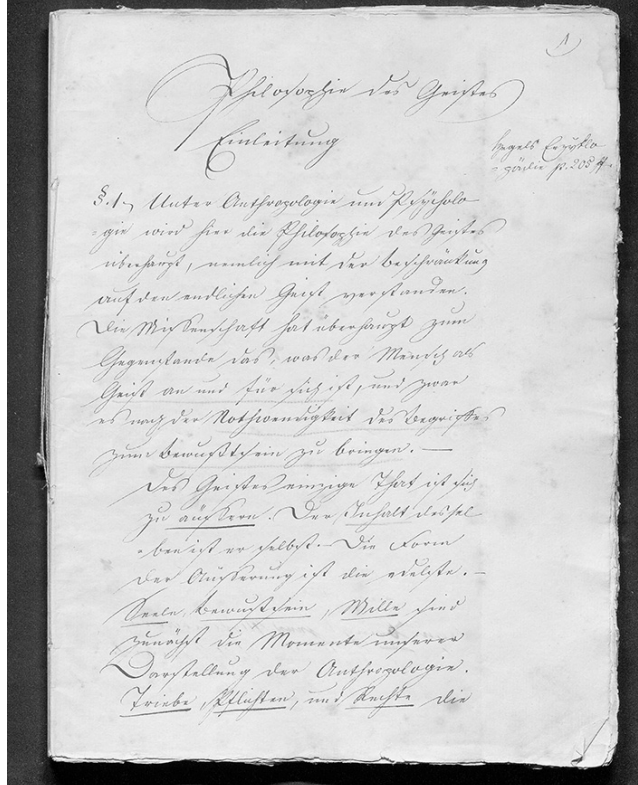 1)
Philosophie des Geistes
Einleitung
Hegels Encyklo
-pädie p. 205 ff.
§. 1. Unter Anthropologie und Psycholo-
-gie wird hier die Philosophie des Geistes
überhaupt, nemlich mit der Beschränkung
auf den endlichen Geist verstanden.
Die Wissenschaft hat überhaupt zum
Gegenstande das, was der Mensch als
Geist an und für sich ist, und zwar
es nach der Nothwendigkeit des Begriffes
zum Bewußtsein zu bringen. —
Des Geistes einzige That ist sich
zu äußern. Der Inhalt dessel
-ben ist er selbst. – Die Form
der Äußerung ist die edelste. –
Seele, Bewußtsein, Wille sind
zunächst die Momente unserer
Darstellung der Anthropologie.
Triebe, Pflichten, und Rechte die